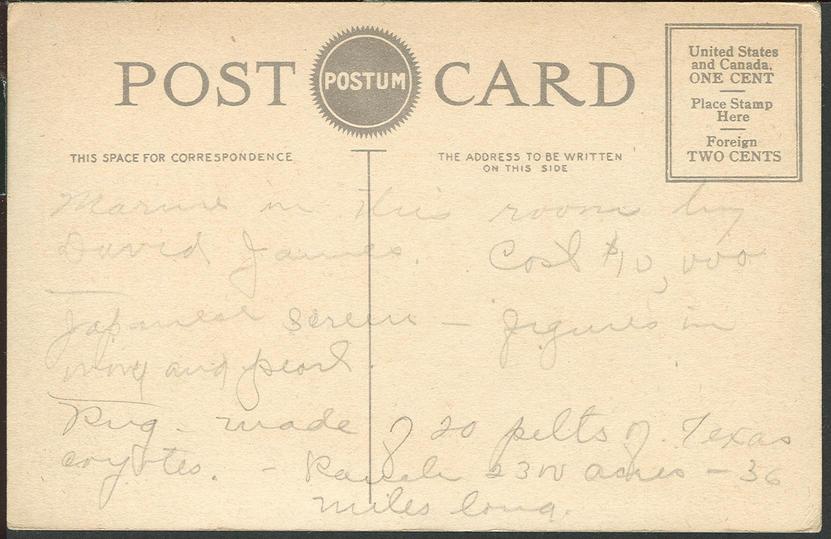 POST POSTUM CARD
United States
and Canada,
ONE CENT
Place Stamp
Here
Foreign
TWO CENTS
THIS SPACE FOR CORRESPONDENCE
THE ADDRESS TO BE WRITTEN
ON THIS SIDE
Marine in this room by
David James. Cost $10,000
Japanese Screen — figures in
and pearl.
Rug - made of 20 pelts of Texas
coyotes. - Ranch acres - 36
miles long.